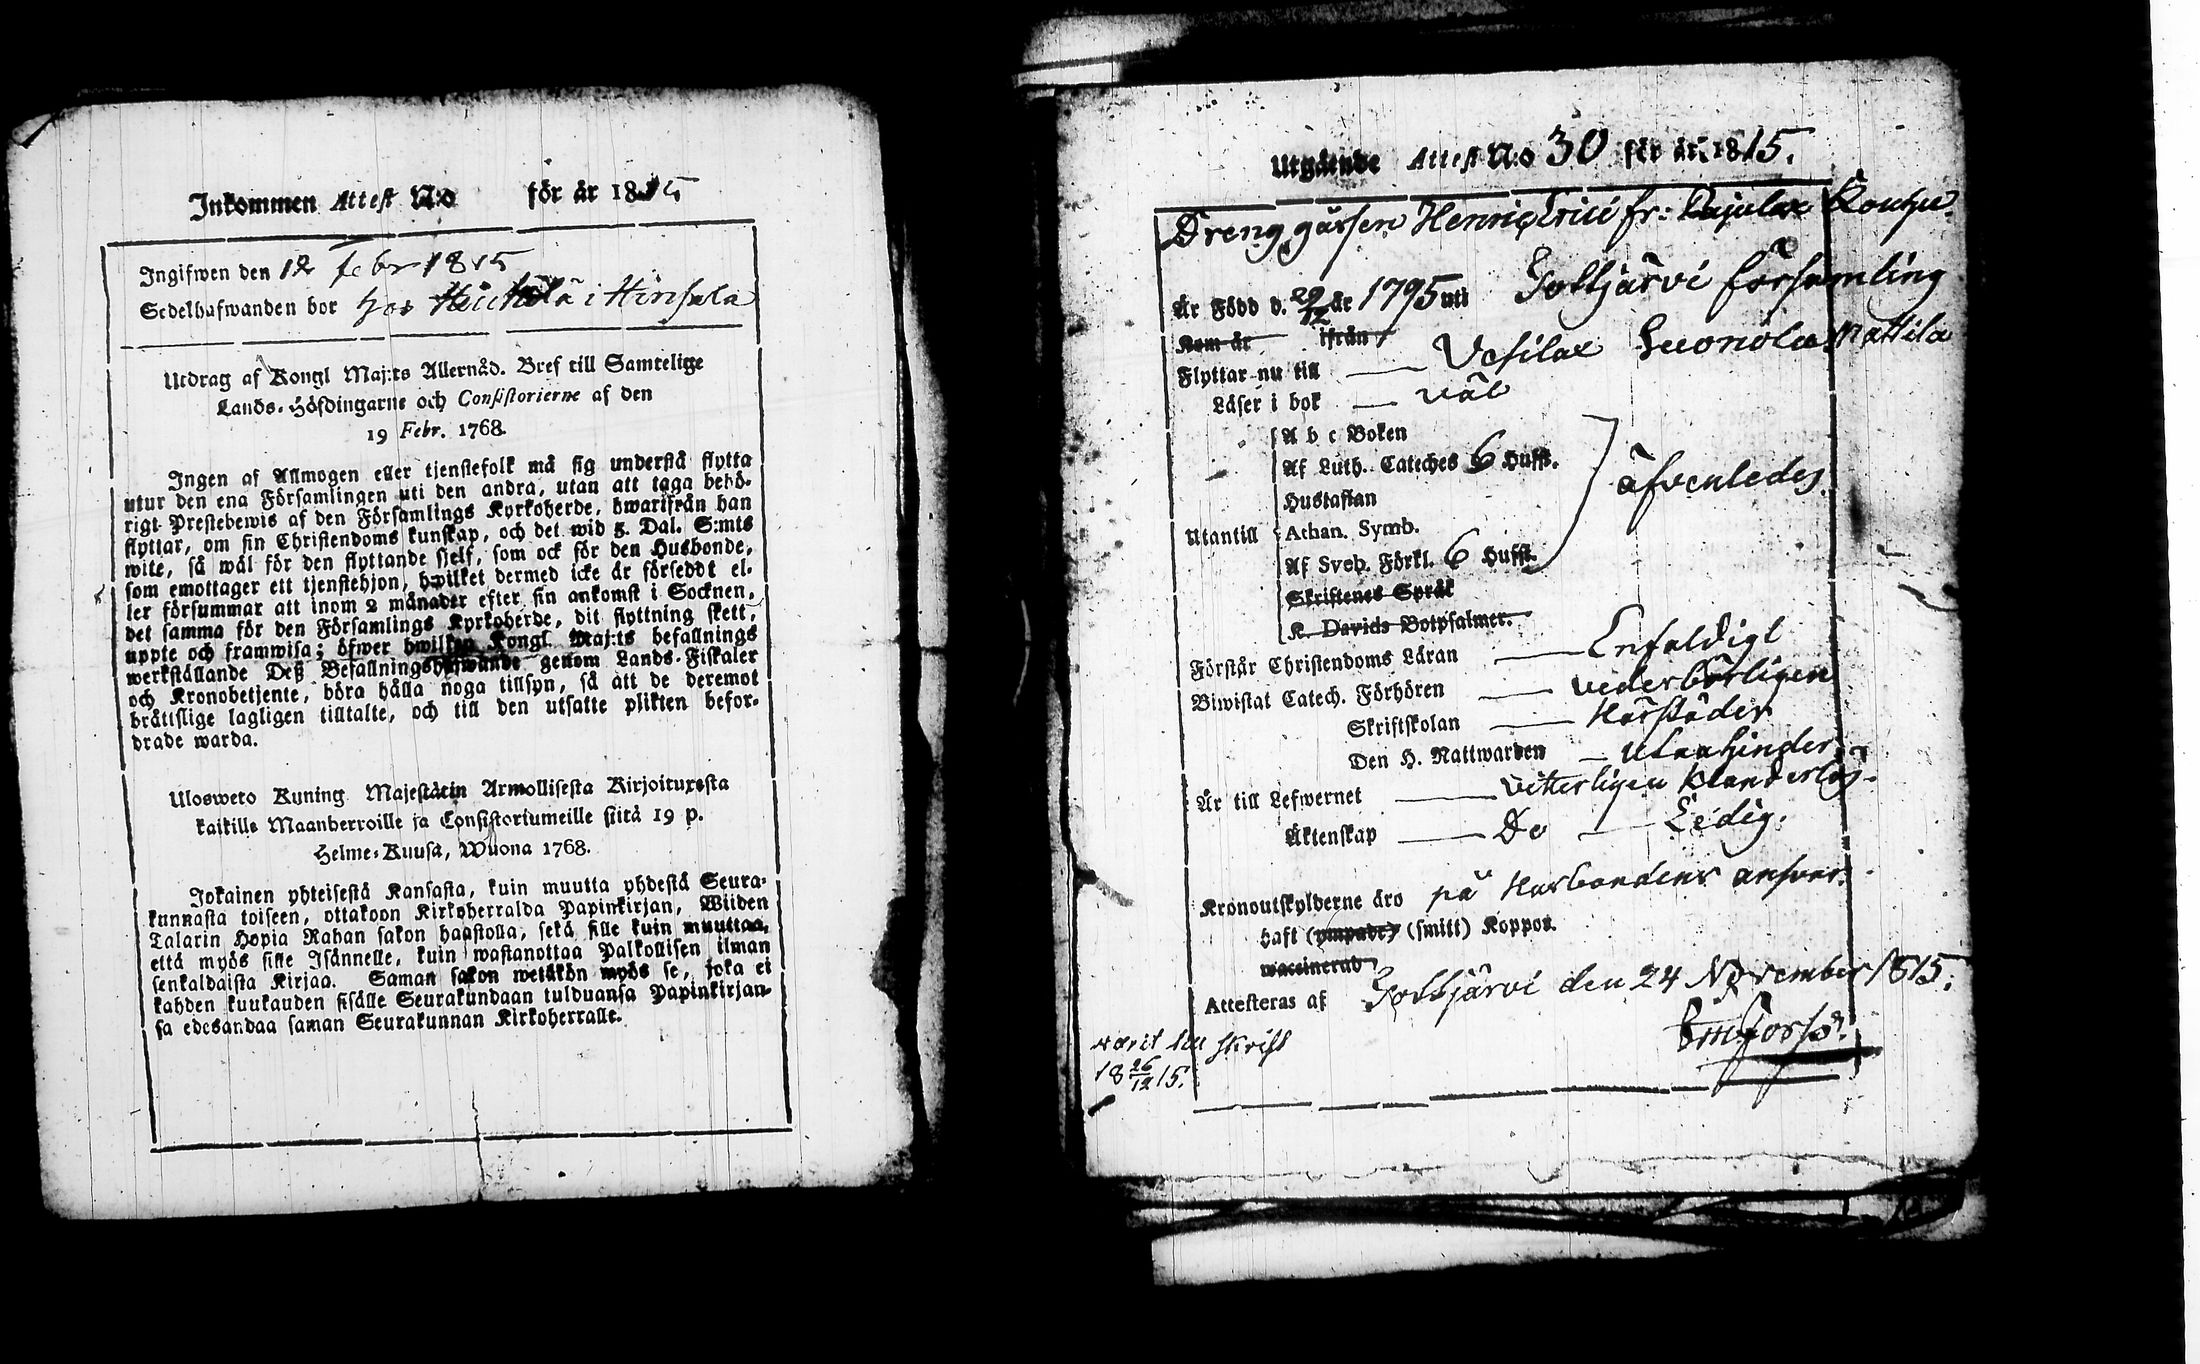 Inkommen Attest N:o för år 1815
Ingifwen den 12 febr 1815
Sedelhafwanden bor hos i Hinsala
Utdrag af Kongl Maj:ts Allernåd. Bref till Samtelige
Lands-Höfdingarne och Consistorierne af den
19 Febr. 1768.
Ingen af Allmogen eller tjenstefolk må sig understå flytta
utur den ena Församlingen uti den andra, utan att taga behö-
rigt Prestebewis af den Församlings Kyrkoherde, hwarifrån han
flyttar, om sin Christendoms kunskap, och det wid 5. Dal. S:mts
wite, så wäl för den flyttande sjelf, som ock för den Husbonde,
som emottager ett tjenstehjon, hwilket dermed icke är förseddt el-
ler försummar att inom 2 månader efter sin ankomst i Socknen,
det samma för den Församlings Kyrkoherde, dit flyttning skett,
uppte och framwisa; öfwer hwilken Kongl. Maj:ts befallnings
werkställande Deß Befallningshafwande genom Lands-Fiskaler
och Kronobetjente, böra hålla noga tillsyn, så att de deremot
bråttslige lagligen tilltalte, och till den utsatte plikten befor-
drade warda.
Ulosweto Kuning Majestätin Armollisesta Kirjoituxesta
kaikille Maanherroille ja Consistoriumeille siitä 19 p.
Helme-Kuusa, Wuona 1768.
Jokainen yhteisestä Kansasta, kuin muutta yhdestä Seura-
kunnasta toiseen, ottakoon Kirkoherralda Papinkirjan, Wiiden
Talarin Hopia Rahan sakon haastolla, sekä sille kuin muuttaa,
että myös sille Isännelle, kuin wastanottaa Palkollisen ilman
senkaldaista Kirjaa. Saman sakon wetäkön myös se, joka ei
kahden kuukauden sisälle Seurakundaan tulduansa Papinkirjan-
sa edesandaa saman Seurakunnan Kirkoherralle.
Utgående Attest N:o 30 för år 1815.
Drenggåssen Henric Erici fr: Kouhu
Är Född d. 20/12 år 1795 uti Pottjärvi församling
Kom år ifrån
Flyttar nu till Vesilax Suonola Mattila
Läser i bok väl
A b c Boken
Af Luth. Cateches 6 Hufst.
Hustaflan
äfvenledes
Utantill Athan. Symb.
Af Sveb. Förkl. 6 Hufst.
Skriftenes Språk
K. Davids Botpsalmer.
Förstår Christendoms Läran Enfaldigt
Biwistat Catech. Förhören vederbörligen
Skriftskolan
Den H. Nattwarden utan hinder
Är till Lefwernet vitterligen klanderlös.
Äktenskap Do Ledig.
Kronoutskylderne äro på Husbondens ansvar.
Haft (ympade) (smitt) Koppor.
waccinerad
Attesteras af Pottjärvi den 24 November 1815.
varit till skrift
18 26/12 15.